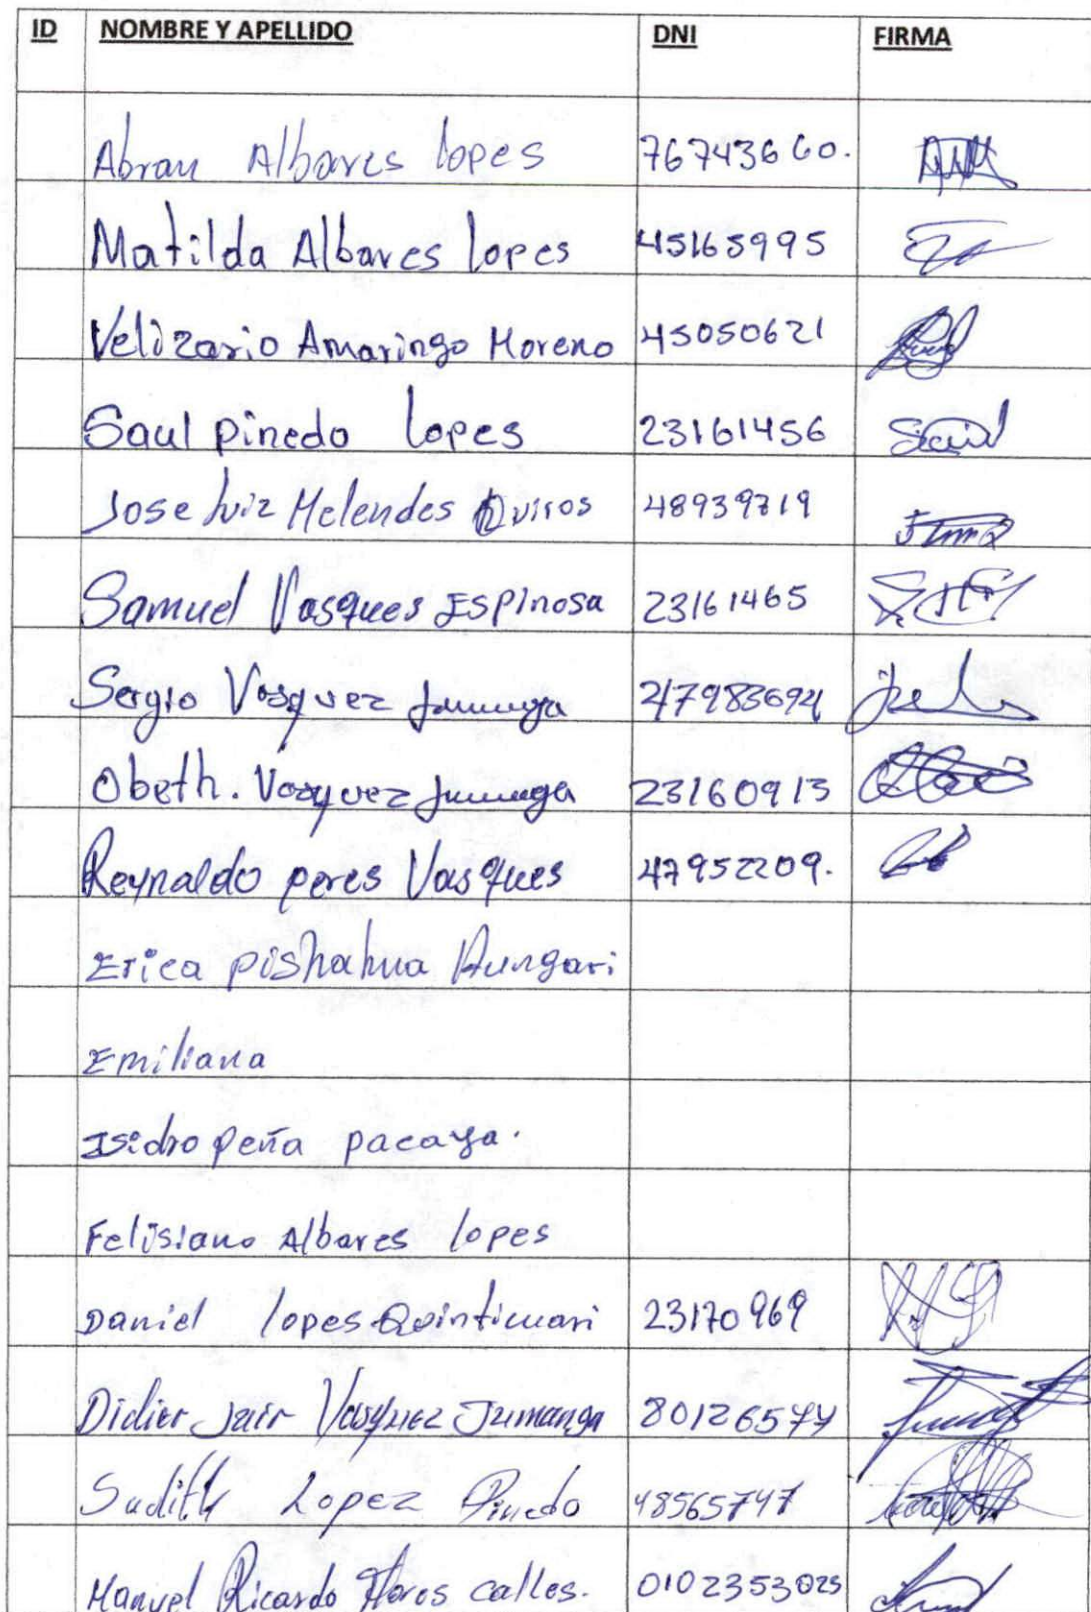 ID NOMBRE Y APELLIDO DNI FIRMA
Abran Albares lopes 76743660.
Matilda Albares lopes 45165995
Velizario Amaringo Moreno 45050621
Saul pinedo lopes 23161456 Saul
Jose luiz Melendes Quiros 48939719
Samuel Vasques Espinosa 23161465
Sergio Vasquez Jumanga 47983694
Obeth. Vasquez Jumanga 23160913
Reynaldo peres Vasques 47952209.
Erica pishahua Aungari
Emiliana
Isidro peña pacaya.
Felisiano Albares lopes
Daniel lopes Quinticuari 23170969
Didier Jair Vasquez Jumanga 80126577
Sudith Lopez Pinedo 48565747
Manuel Ricardo Flores calles. 0102353025